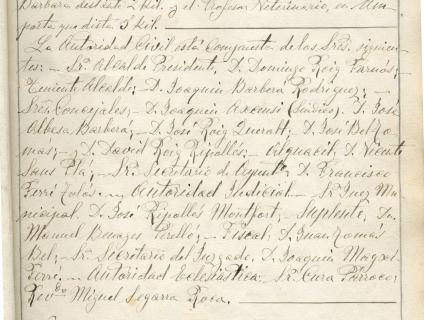 Barbara dest este 2 kil. y el Profesor Veterinario, en
porta que dista 3 kil. —
La Autoridad Civil está Compuesta de los Sres. siguien-
tes: — Sr. Alcalde Presidente, D. Domingo Roig Farnós;
Teniente Alcalde; D. Joaquin Barbera Rodriguez; —
Sres. Concejales; — D. Joaquin Axensi (Sindico). D. José
Albesa Barbera; — D. José Roig Queralt; D. José Bel
mas; — y D. David Roig Ripollés: Alguacil, D. Vicente
Sans Plá; — Sr. Secretario de Aynto. D. Francisco
Ferri — Autoridad Judicial — Sr. Juez Mu-
nicipal. D. José Ripollés Montfort; — Suplente; D.
Manuel Benages Perelló; — Fiscal; D. Juan Tomás
Bel; — Sr. Secretario del Juzgado; D. Joaquin
Ferri. — Autoridad Eclesiástica. Sr. Cura Párroco;
Revdo. Miguel Segarra Roca.